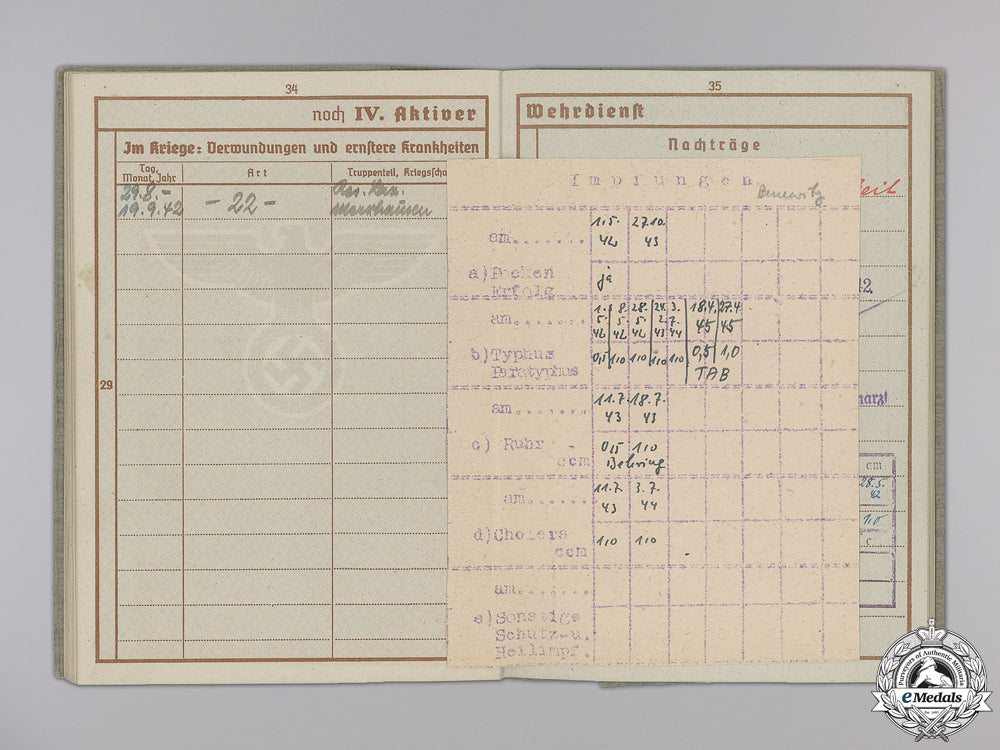 34
noch IV. Aktiver
Im Kriege: Verwundungen und ernstere Krankheiten
Tag, Monat, Jahr
Art
Truppenteil, Kriegsscha
29.8. –
19.9.42
– 22 –
Res. Laz.
29
35
Wehrdienst
Nachträge
Impfungen
1.5. 27.10.
am........ 42 43
a) Pocken
Erfolg ja
1. 8. 28. 24. 3. 18.4. 27.4
am........ 5. 5. 5. 2. 7. 45 45
42 42 42 43 44
b) Typhus 0,5 1,0 1,0 1,0 1,0 0,5 1,0
Paratyphus TAB
11.7. 18.7.
am........ 43 43
c) Ruhr 0,5 1,0
ccm Behring
11.7. 3.7.
am........ 43 44
d) Cholera
ccm 1,0 1,0
am........
e) Sonstige
Schutz-u.
Heilimpf.
eit
2.
narzt
cm
28.5.
42
1,0
c.
Purveyors of Authentic Militaria
eMedals